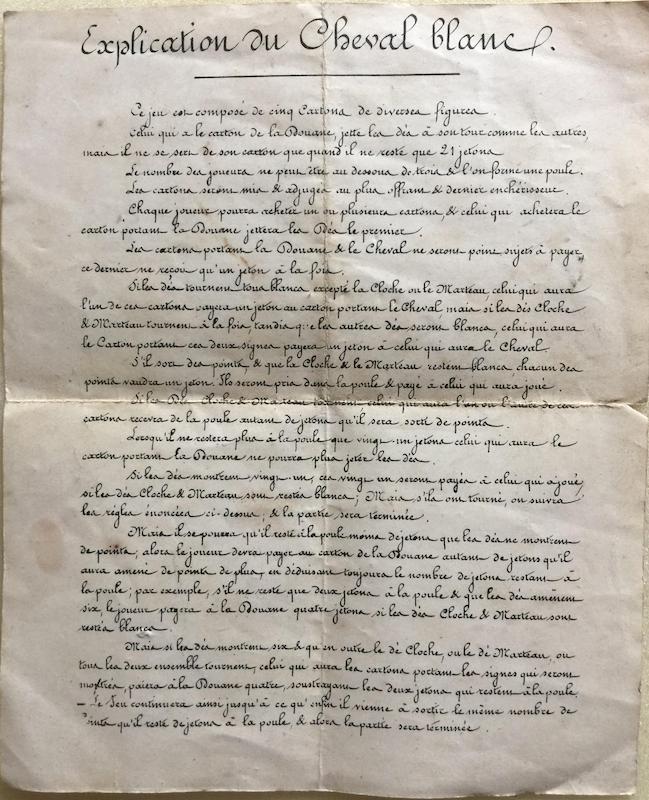 Explication du Cheval blanc.
Ce jeu est composé de cinq Cartons de diverses figures.
Celui qui a le carton de la Douane, jette les dés à son tour comme les autres,
mais il ne se sert de son carton que quand il ne reste que 21 jetons
Le nombre des joueurs ne peut être au dessous de trois & l'on forme une poule.
Les cartons seront mis & adjugés au plus offrant & dernier enchérisseur.
Chaque joueur pourra acheter un ou plusieurs cartons, & celui qui achetera le
carton portant la Douane jettera les Dés le premier.
Les cartons portant la Douane & le Cheval ne seront point sujets à payer,
ce dernier ne reçoit qu'un jeton à la fois.
Si les dés tournent tous blancs excepté la Cloche ou le Marteau, celui qui aura
l'un de ces cartons payera un jeton au carton portant le Cheval, mais si les dés Cloche
& Marteau tournent à la fois, tandis que les autres dés seront blancs, celui qui aura
le Carton portant ces deux signes payera un jeton à celui qui aura le Cheval.
S'il sort des points, & que la Cloche & le Marteau restent blancs, chacun des
points vaudra un jeton. Ils seront pris dans la poule & payé à celui qui aura joué.
Si les Dés Cloche & Marteau tournent celui qui aura l'un ou l'autre de ces
cartons recevra de la poule autant de jetons qu'il sera sorti de points.
Lorsqu'il ne restera plus à la poule que vingt-un jetons celui qui aura le
carton portant la Douane ne pourra plus jeter les dés.
Si les dés montrent vingt-un, ces vingt un seront payés à celui qui a joué,
si les dés Cloche & Marteau sont restés blancs; Mais s'ils ont tourné, on suivra
les règles énoncées ci-dessus, & la partie sera terminée.
Mais il se pourra qu'il reste à la poule moins de jetons que les dés ne montrent
de points; alors le joueur devra payer au carton de la Douane autant de jetons qu'il
aura amené de points de plus, en déduisant toujours le nombre de jetons restant à
la poule; par exemple, s'il ne reste que deux jetons à la poule & que les dés amènent
six, le joueur payera à la Douane quatre jetons, si les dés Cloche & Marteau sont
restés blancs.
Mais si les dés montrent six & qu'en outre le dé Cloche, ou le dé Marteau, ou
tous les deux ensemble tournent, celui qui aura les cartons portant les signes qui seront
montrés, paiera à la Douane quatre, soustrayant les deux jetons qui restent à la poule.
— Le Jeu continuera ainsi jusqu'à ce qu'enfin il vienne à sortir le même nombre de
Points qu'il reste de jetons à la poule, & alors la partie sera terminée.